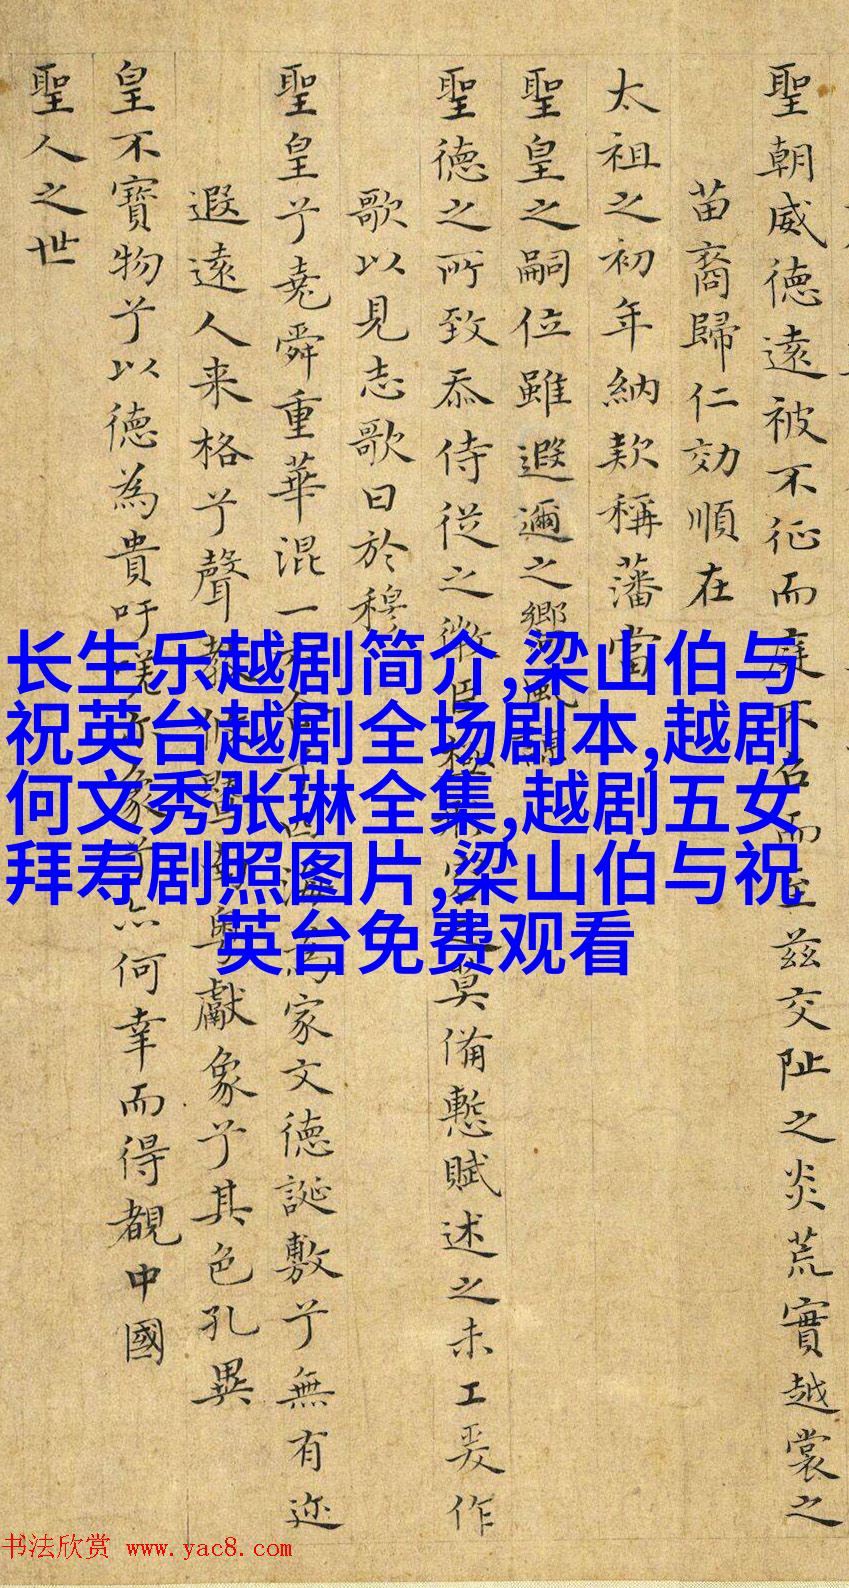 聖朝威德遠被不征而庭不召而至茲交阯之炎荒實越裳之
苗裔歸仁効順在
太祖之初年納款稱藩當
聖皇之嗣位雖遐邇之鄉風
聖德之所致忝侍從之微臣
莫備慙賦述之未工爰作
歌以見志歌曰於穆
聖皇兮堯舜重華混一
家文德誕敷兮無有迩
遐遠人来格兮聲教
獻象兮其色孔異
皇不寶物兮以德為貴吁嗟
何幸而得覩中國
聖人之世
长生乐越剧简介,梁山伯与
祝英台越剧全场剧本,越剧
何文秀张琳全集,越剧五女
拜寿剧照图片,梁山伯与祝
英台免费观看
书法欣赏 www.yac8.com